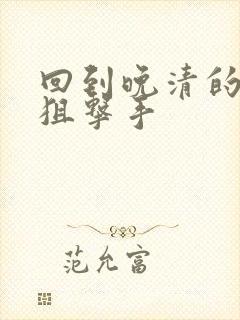 回到晚清的
狙击手
范允富